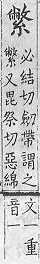 䌘
必結切劒帶謂之
䌘又毘祭切惡綿
文一重
音一